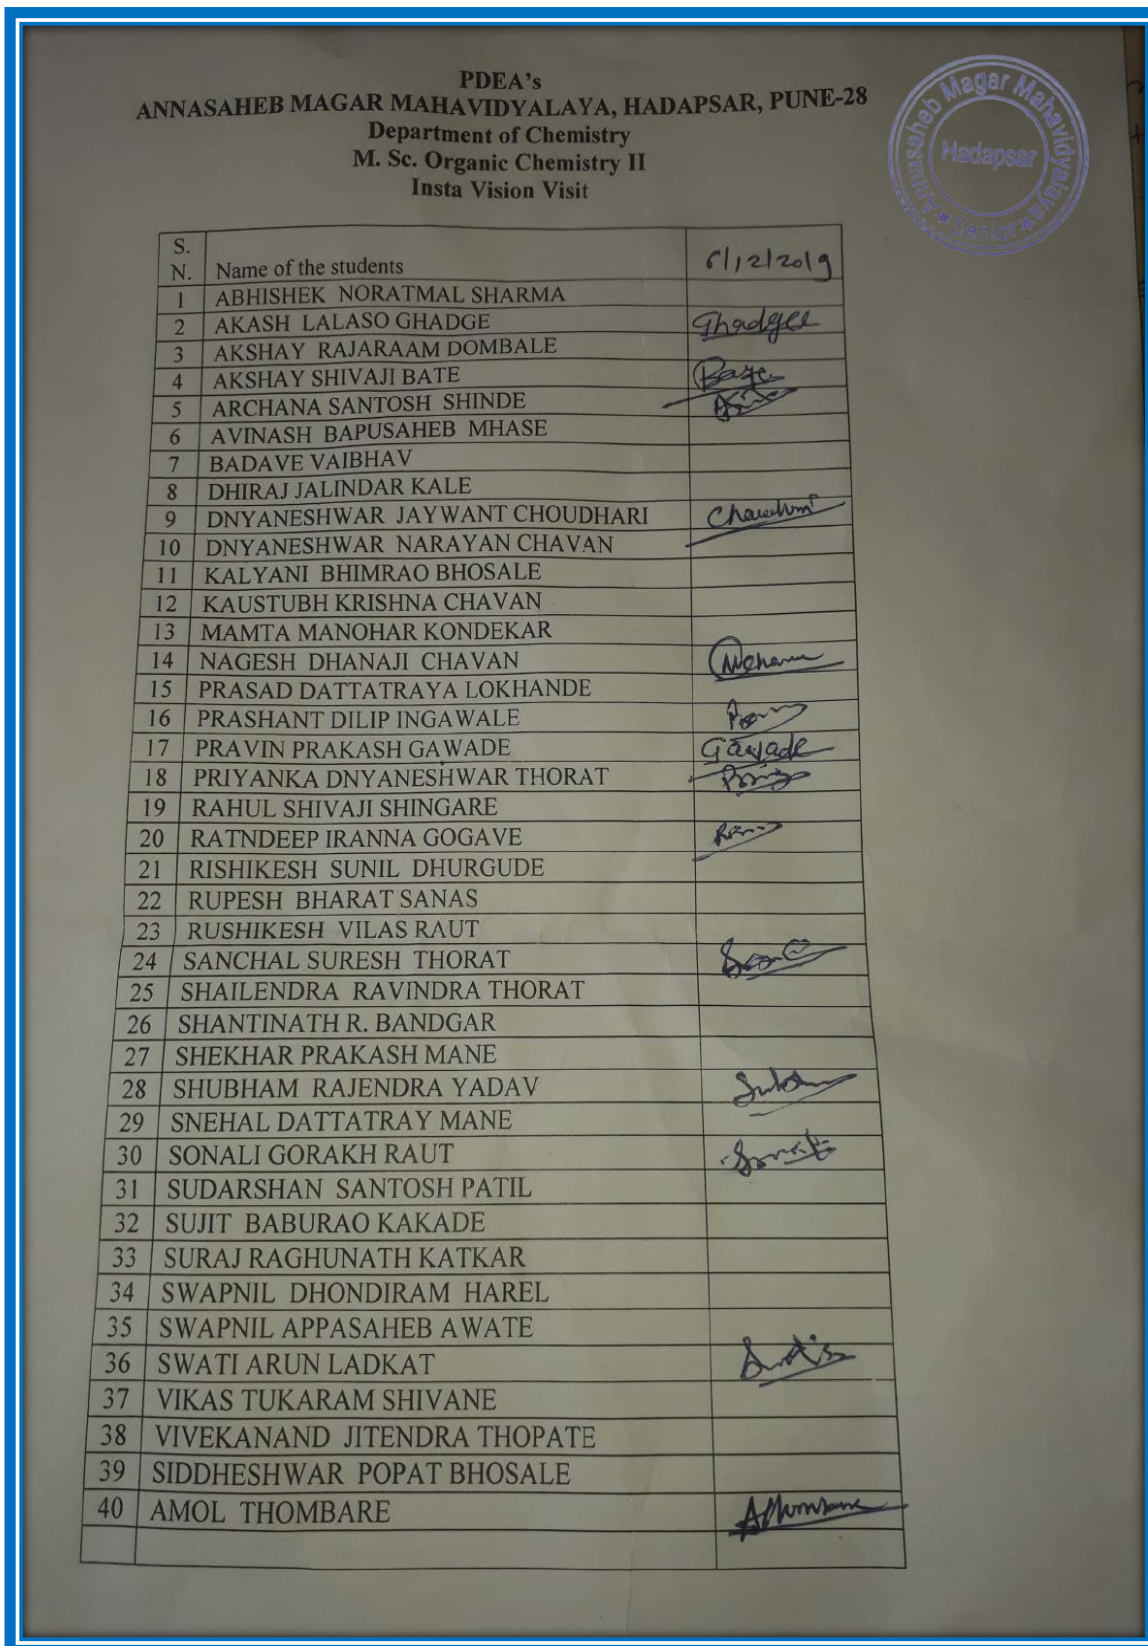 PDEA's
ANNASAHEB MAGAR MAHAVIDYALAYA, HADAPSAR, PUNE-28
Department of Chemistry
M. Sc. Organic Chemistry II
Insta Vision Visit
Annasaheb Magar Mahavidyalaya
Hadapsar
★ Senior ★
S. N. Name of the students 6/12/2019
1 ABHISHEK NORATMAL SHARMA
2 AKASH LALASO GHADGE Ghadgee
3 AKSHAY RAJARAAM DOMBALE
4 AKSHAY SHIVAJI BATE
5 ARCHANA SANTOSH SHINDE
6 AVINASH BAPUSAHEB MHASE
7 BADAVE VAIBHAV
8 DHIRAJ JALINDAR KALE
9 DNYANESHWAR JAYWANT CHOUDHARI
10 DNYANESHWAR NARAYAN CHAVAN
11 KALYANI BHIMRAO BHOSALE
12 KAUSTUBH KRISHNA CHAVAN
13 MAMTA MANOHAR KONDEKAR
14 NAGESH DHANAJI CHAVAN
15 PRASAD DATTATRAYA LOKHANDE
16 PRASHANT DILIP INGAWALE
17 PRAVIN PRAKASH GAWADE Gawade
18 PRIYANKA DNYANESHWAR THORAT
19 RAHUL SHIVAJI SHINGARE
20 RATNDEEP IRANNA GOGAVE
21 RISHIKESH SUNIL DHURGUDE
22 RUPESH BHARAT SANAS
23 RUSHIKESH VILAS RAUT
24 SANCHAL SURESH THORAT
25 SHAILENDRA RAVINDRA THORAT
26 SHANTINATH R. BANDGAR
27 SHEKHAR PRAKASH MANE
28 SHUBHAM RAJENDRA YADAV
29 SNEHAL DATTATRAY MANE
30 SONALI GORAKH RAUT
31 SUDARSHAN SANTOSH PATIL
32 SUJIT BABURAO KAKADE
33 SURAJ RAGHUNATH KATKAR
34 SWAPNIL DHONDIRAM HAREL
35 SWAPNIL APPASAHEB AWATE
36 SWATI ARUN LADKAT
37 VIKAS TUKARAM SHIVANE
38 VIVEKANAND JITENDRA THOPATE
39 SIDDHESHWAR POPAT BHOSALE
40 AMOL THOMBARE